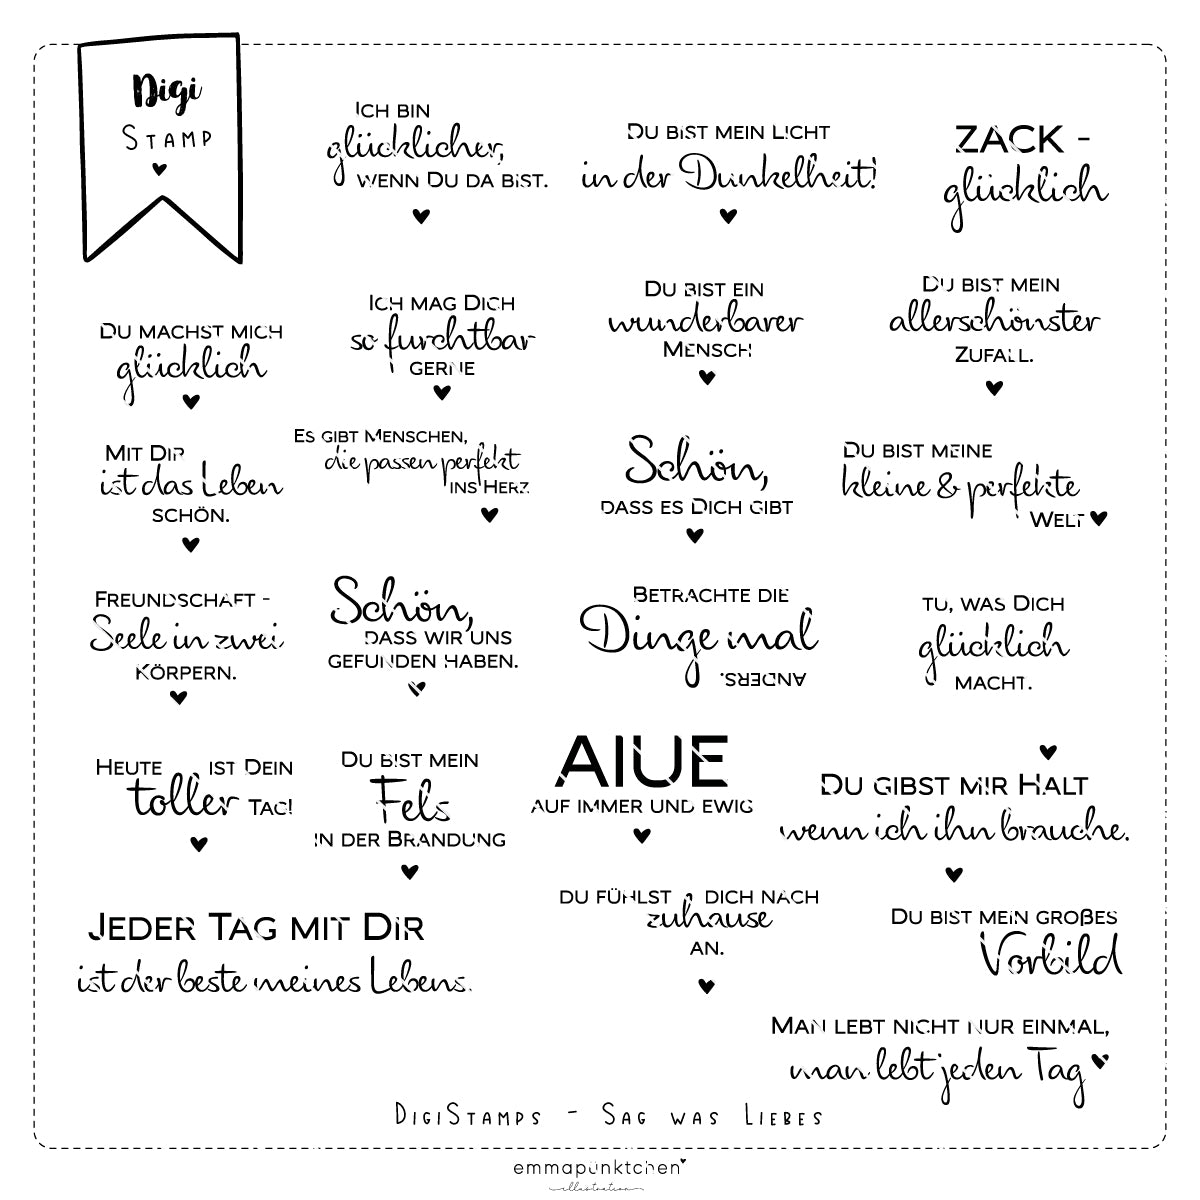 Digi
STAMP
ICH BIN
glücklicher,
WENN DU DA BIST.
DU BIST MEIN LICHT
in der Dunkelheit!
ZACK -
glücklich
DU MACHST MICH
glücklich
ICH MAG DICH
so furchtbar
GERNE
DU BIST EIN
wunderbarer
MENSCH
DU BIST MEIN
allerschönster
ZUFALL.
MIT DIR
ist das Leben
SCHÖN.
ES GIBT MENSCHEN,
die passen perfekt
INS HERZ.
Schön,
DASS ES DICH GIBT
DU BIST MEINE
kleine & perfekte
WELT
FREUNDSCHAFT -
Seele in zwei
KÖRPERN.
Schön,
DASS WIR UNS
GEFUNDEN HABEN.
BETRACHTE DIE
Dinge mal
ANDERS.
TU, WAS DICH
glücklich
MACHT.
HEUTE IST DEIN
toller TAG!
DU BIST MEIN
Fels
IN DER BRANDUNG
AIUE
AUF IMMER UND EWIG
DU GIBST MIR HALT
wenn ich ihn brauche.
JEDER TAG MIT DIR
ist der beste meines Lebens.
DU FÜHLST DICH NACH
zuhause
AN.
DU BIST MEIN GROßES
Vorbild
MAN LEBT NICHT NUR EINMAL,
man lebt jeden Tag
DIGISTAMPS - SAG WAS LIEBES
emmapünktchen
illustration